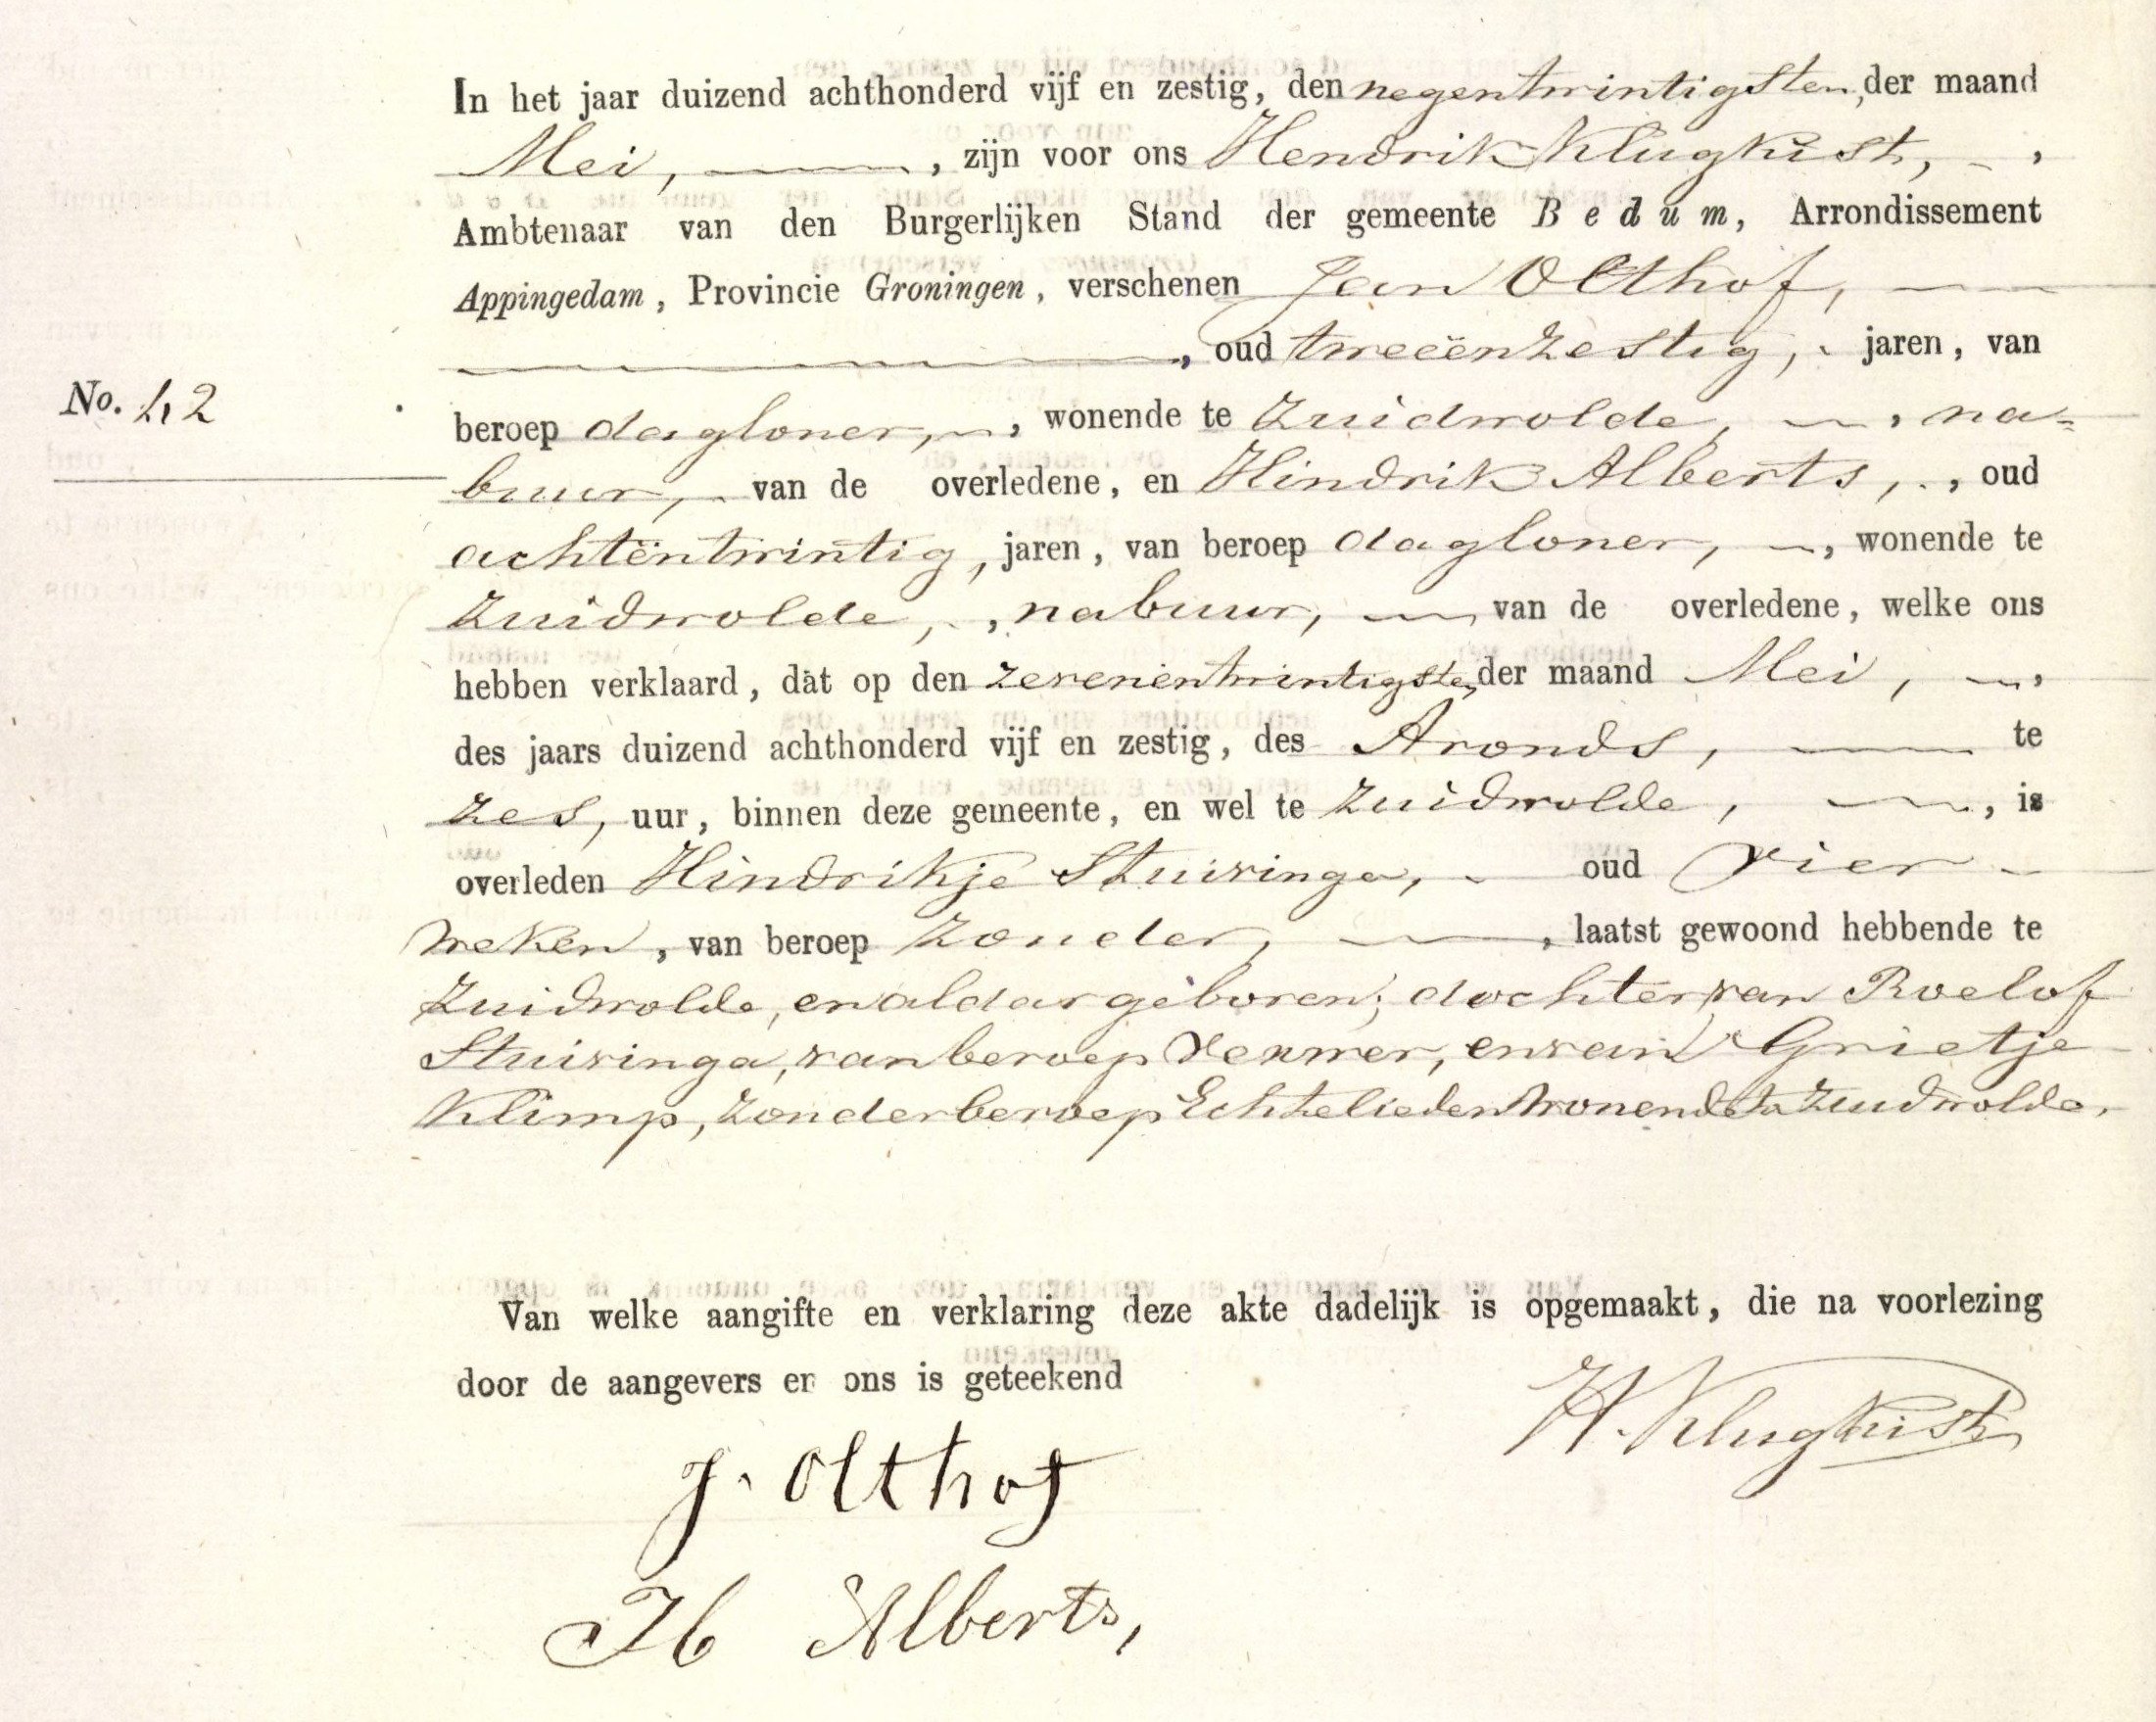 In het jaar duizend achthonderd vijf en zestig, den negentwintigsten, der maand
Mei, , zijn voor ons Hendrik Klugkist, ,
Ambtenaar van den Burgerlijken Stand der gemeente Bedum, Arrondissement
Appingedam, Provincie Groningen, verschenen Jan Olthof,
, oud tweeënzestig, jaren, van
No. 42
beroep dagloner, , wonende te Zuidwolde, , na=
buur, van de overledene, en Hindrik Alberts, , oud
achtëntwintig, jaren, van beroep dagloner, , wonende te
Zuidwolde, , nabuur, van de overledene, welke ons
hebben verklaard, dat op den zevenentwintigste, der maand Mei, ,
des jaars duizend achthonderd vijf en zestig, des Avonds, te
zes, uur, binnen deze gemeente, en wel te Zuidwolde, , is
overleden Hindrikje Stuivinga, oud vier
weken, van beroep zonder, , laatst gewoond hebbende te
Zuidwolde, en aldaar geboren; dochter van Roelof
Stuivinga, van beroep , en van Grietje
Klimp, zonder beroep Echtelieden wonende te Zuidwolde.
Van welke aangifte en verklaring deze akte dadelijk is opgemaakt, die na voorlezing
door de aangevers en ons is geteekend
H. Klugkist
J. Olthof
H Alberts,